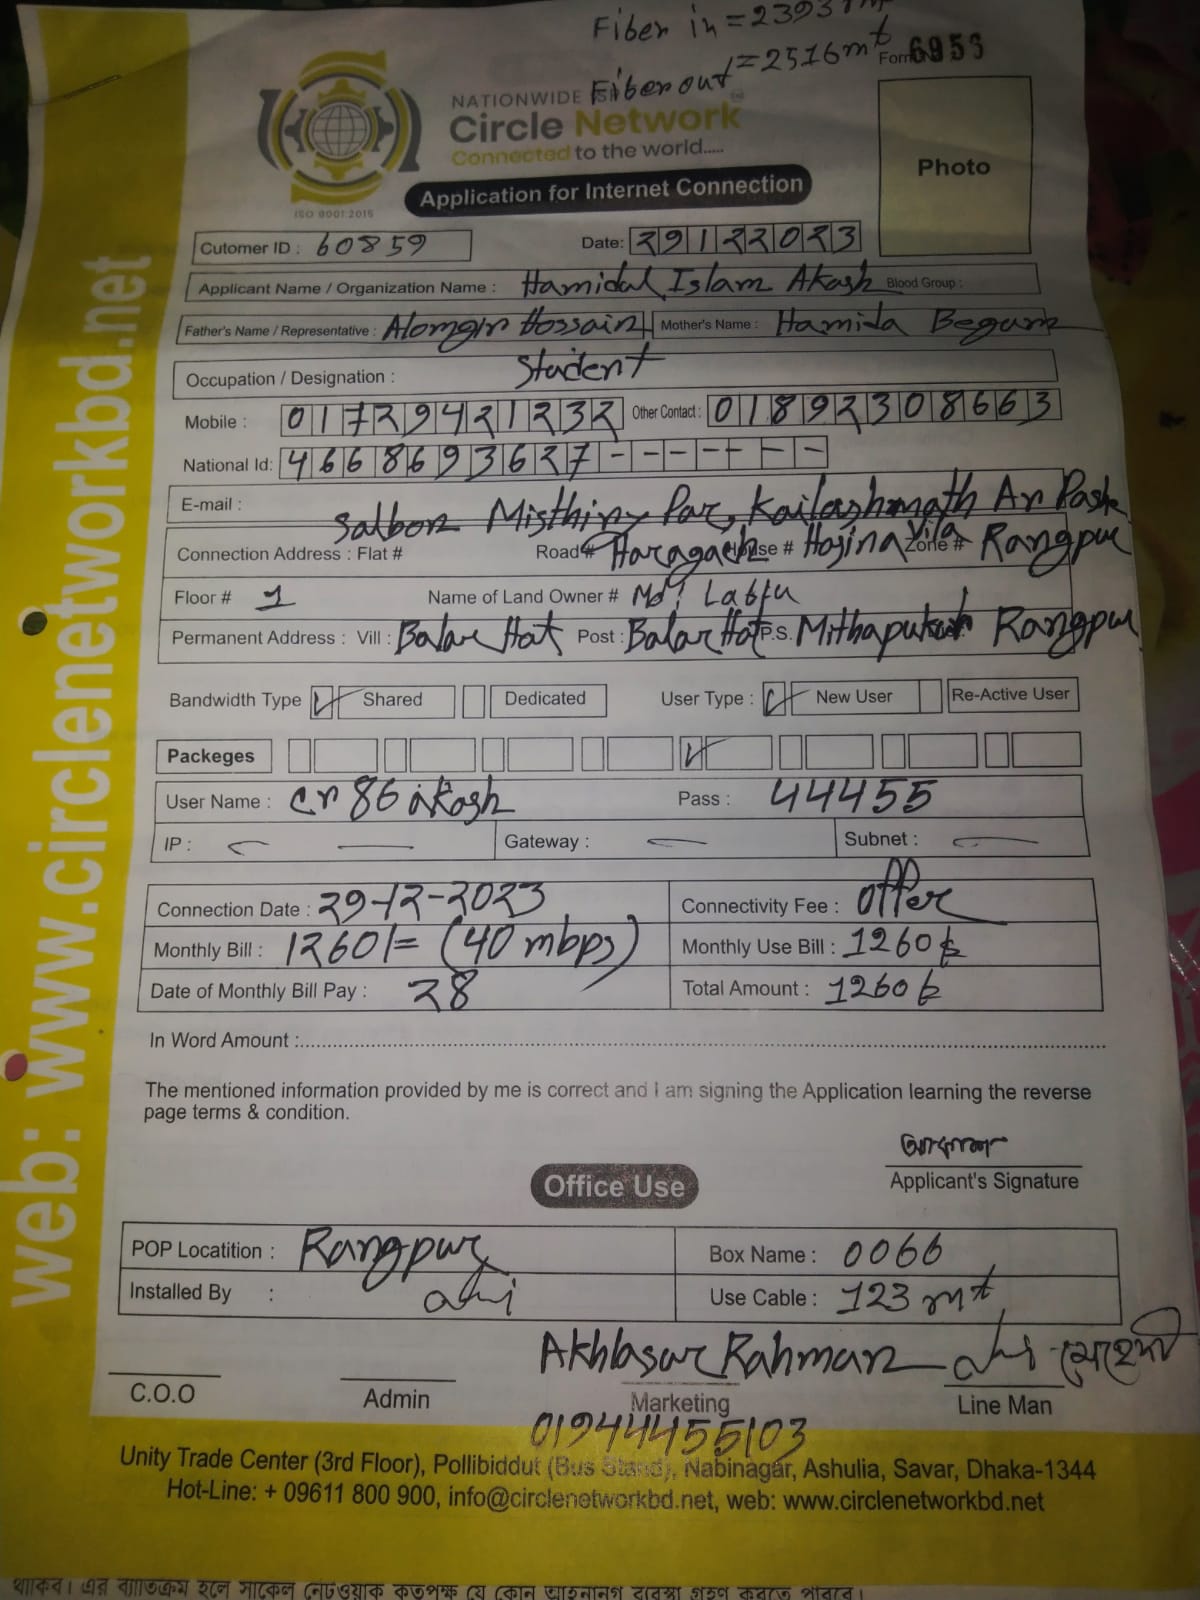 Fiber in = 2393 mt
Fiber out = 2516 mt
Form 6953
NATIONWIDE ISP
Circle Network
Connected to the world.....
ISO 9001:2015
Application for Internet Connection
Photo
Cutomer ID : 60859 Date: 29122023
Applicant Name / Organization Name : Hamidul Islam Akash Blood Group :
Father's Name / Representative : Alomgir Hossain Mother's Name : Hamida Begum
Occupation / Designation : Student
Mobile : 01729421232 Other Contact : 01892308663
National Id: 4668693627 - - - - - - -
E-mail :
Salbon Misthiry Par, Kailashrnath Ar Pashe
Connection Address : Flat # Road # Haragach House # Hasina Vila Zone # Rangpur
Floor # 1 Name of Land Owner # Md. Lablu
Permanent Address : Vill : Balar Hat Post : Balar Hat P.S. Mithapukur Rangpur
Bandwidth Type Shared Dedicated User Type : New User Re-Active User
Packeges
User Name : cn86akash Pass : 44455
IP : — — Gateway : — Subnet : —
Connection Date : 29-12-2023 Connectivity Fee : Offer
Monthly Bill : 1260/= (40 mbps) Monthly Use Bill : 1260 ৳
Date of Monthly Bill Pay : 28 Total Amount : 1260 ৳
In Word Amount :
The mentioned information provided by me is correct and I am signing the Application learning the reverse
page terms & condition.
আকাশ
Applicant's Signature
Office Use
POP Locatition : Rangpur Box Name : 0066
Installed By : Use Cable : 123 mt
Akhlasur Rahman মেহেদী
C.O.O Admin Marketing Line Man
01944455103
Unity Trade Center (3rd Floor), Pollibiddut (Bus Stand), Nabinagar, Ashulia, Savar, Dhaka-1344
Hot-Line: + 09611 800 900, info@circlenetworkbd.net, web: www.circlenetworkbd.net
থাকিব। এর ব্যাতিক্রম হলে সার্কেল নেটওয়ার্ক কতৃপক্ষ যে কোন আইনানুগ ব্যবস্থা গ্রহণ করতে পারবে।
web: www.circlenetworkbd.net